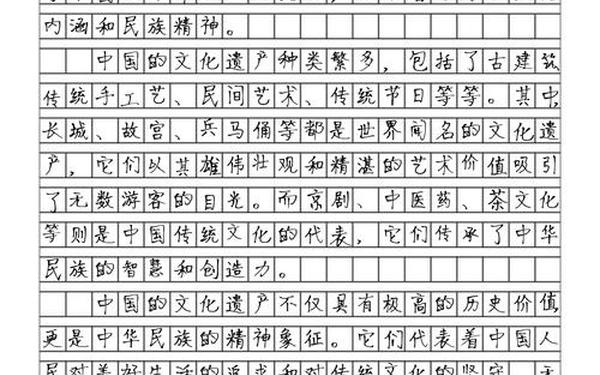 内涵和民族精神。
中国的文化遗产种类繁多，包括了古建筑
传统手工艺、民间艺术、传统节日等等。其中，
长城、故宫、兵马俑等都是世界闻名的文化遗
产，它们以其雄伟壮观和精湛的艺术价值吸引
了无数游客的目光。而京剧、中医药、茶文化
等则是中国传统文化的代表，它们传承了中华
民族的智慧和创造力。
中国的文化遗产不仅具有极高的历史价值
更是中华民族的精神象征。它们代表着中国人
民对美好生活的追求和对传统文化的坚守。无